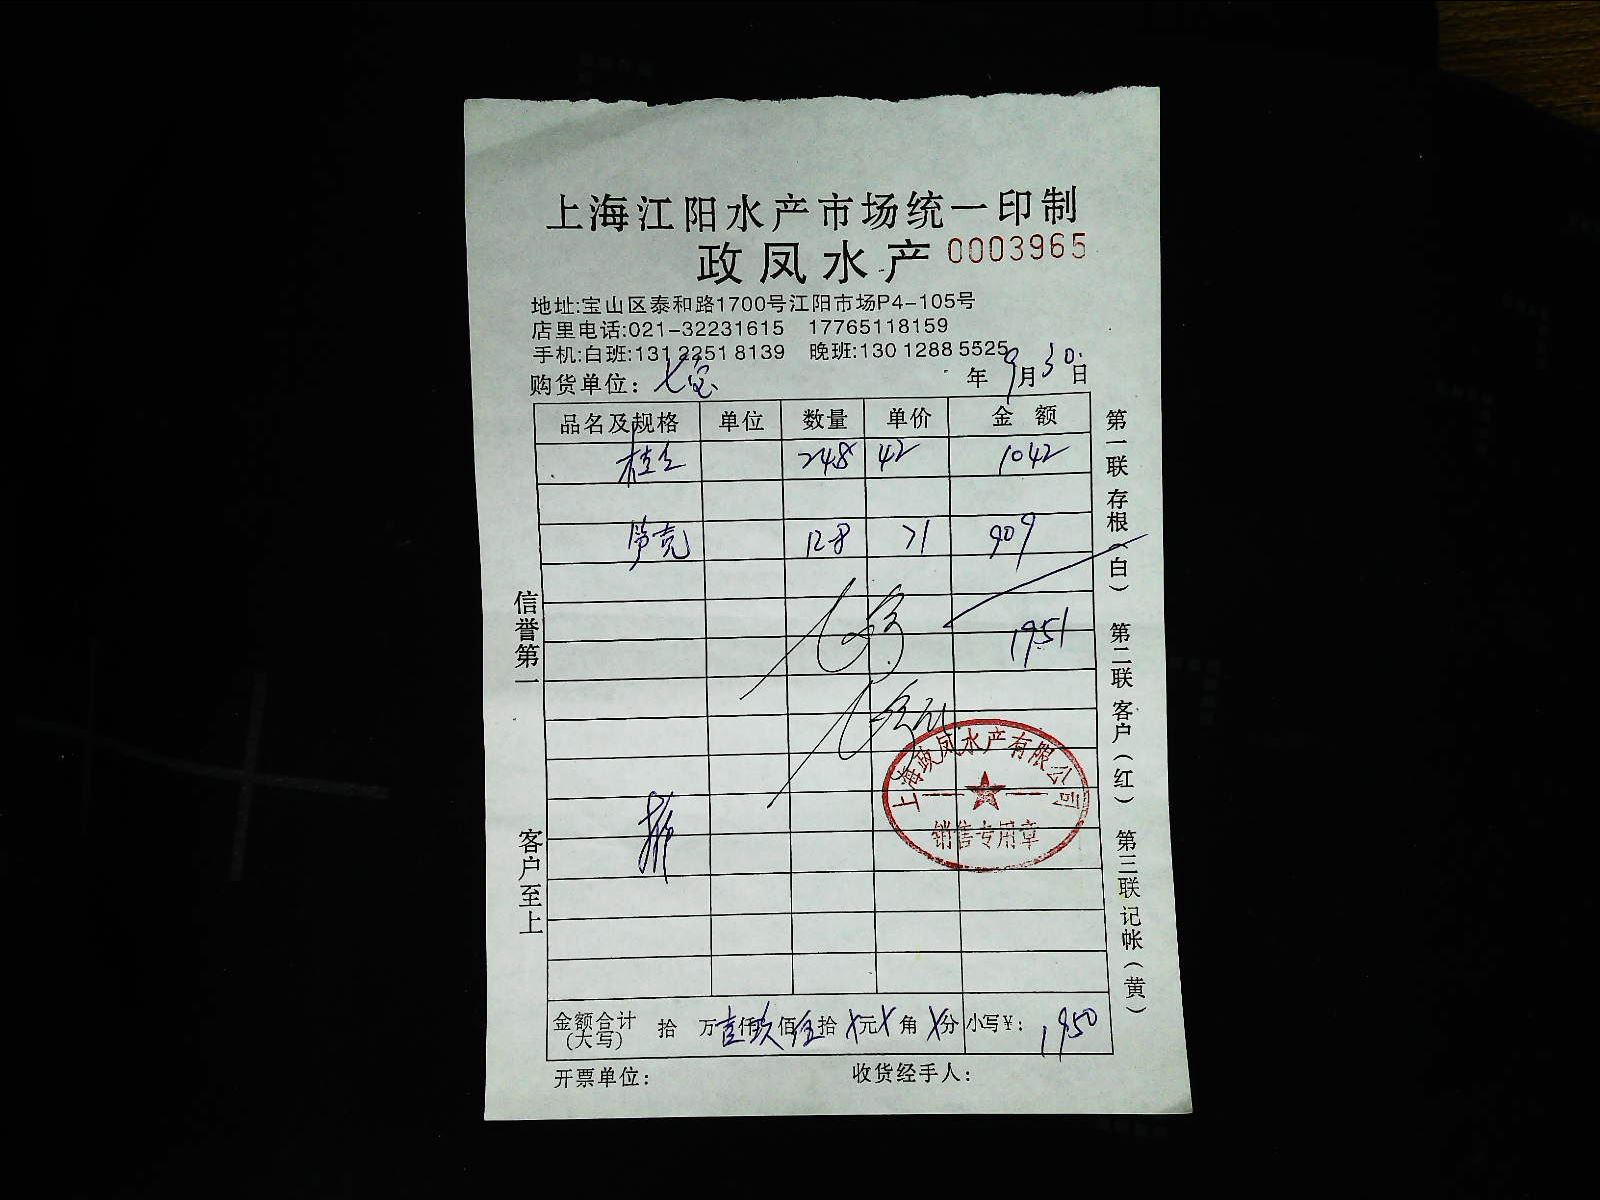 上海江阳水产市场统一印制
政凤水产 0003965
地址:宝山区泰和路1700号江阳市场P4-105号
店里电话:021-32231615 17765118159
手机:白班:131 2251 8139 晚班:130 1288 5525
购货单位: 七宝 年 9月30日
品名及规格 单位 数量 单价 金额
248 42 1042
笋壳 128 71 909
1951
七宝
上海政凤水产有限公司
销售专用章
金额合计(大写) 拾 万壹仟玖佰伍拾 X元X角 X分 小写¥: 1950
开票单位: 收货经手人:
信誉第一
客户至上
第一联存根(白) 第二联客户(红) 第三联记帐(黄)